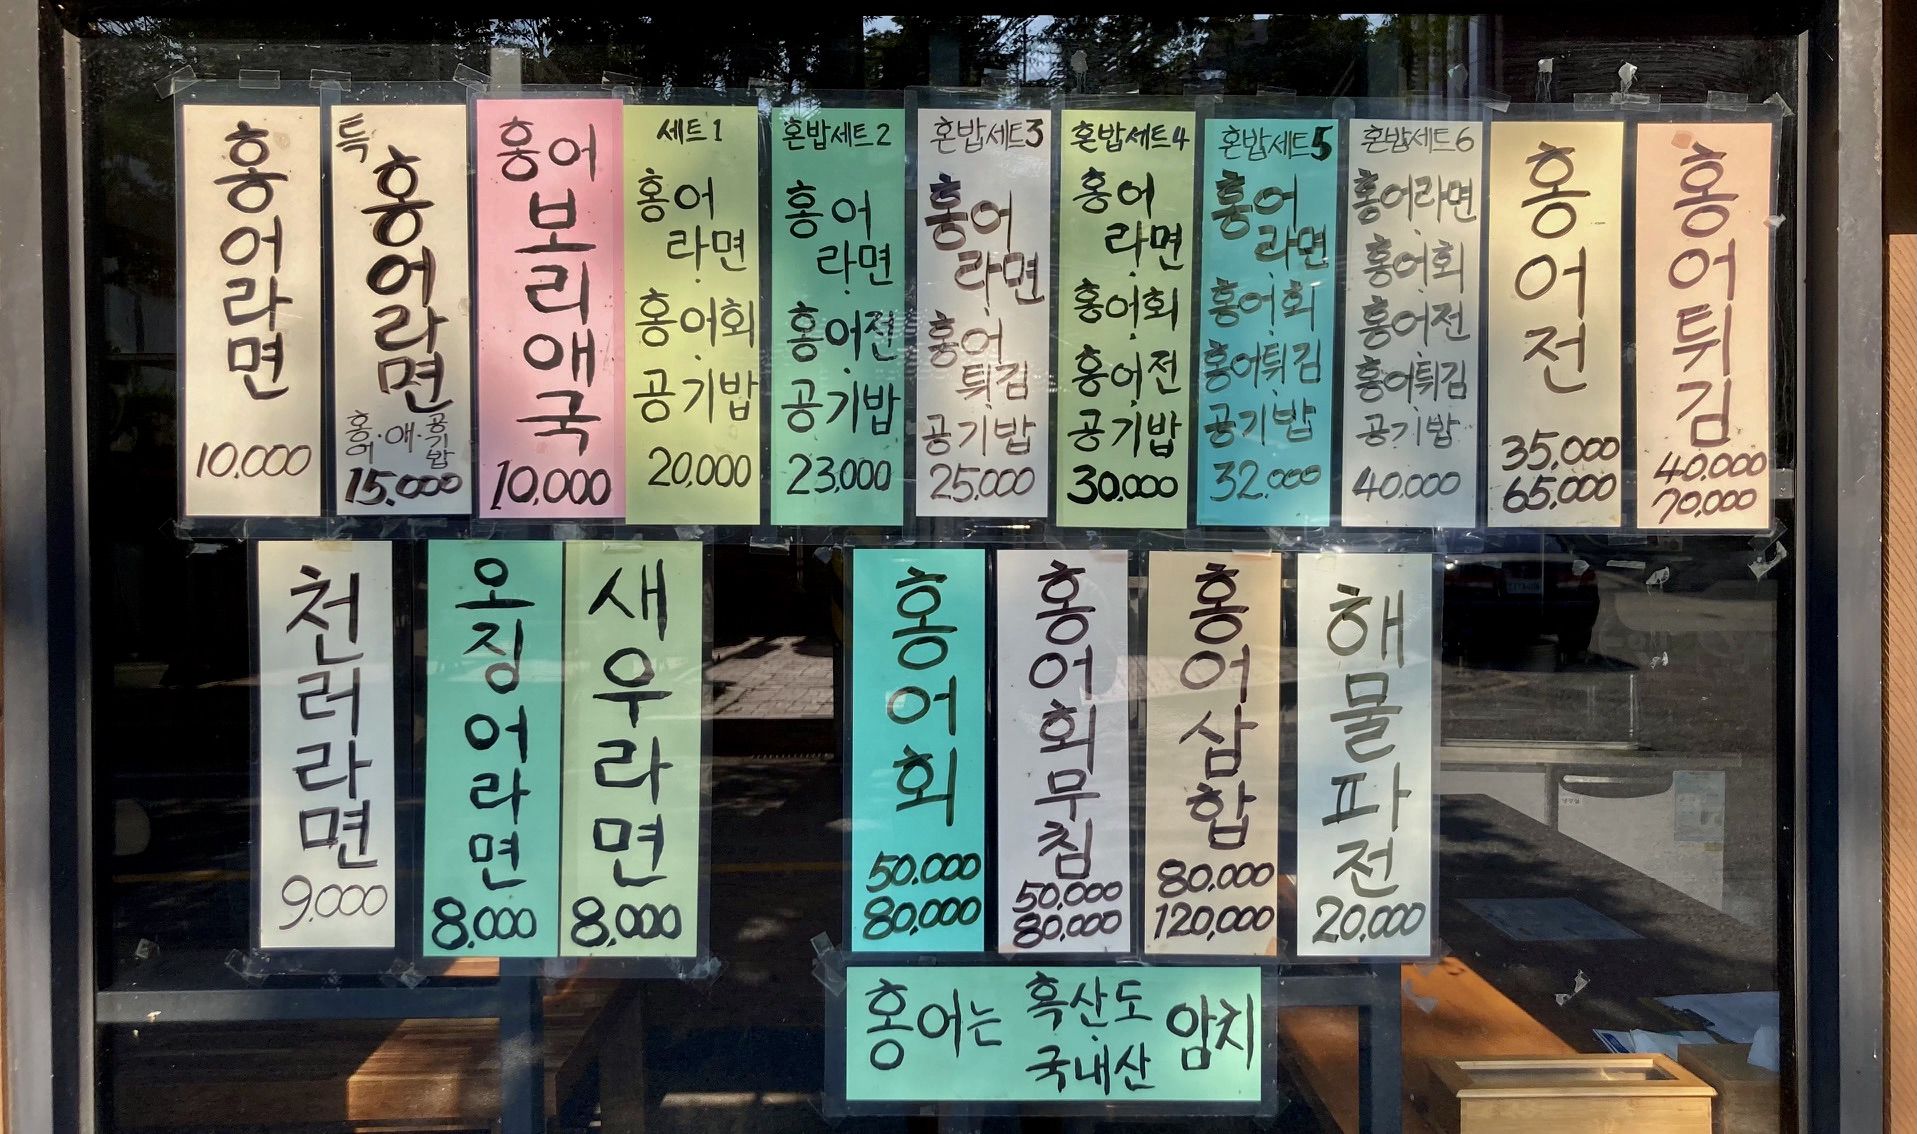 홍어라면
10,000
특
홍어라면
홍어·애·공기밥
15,000
홍어
보리애국
10,000
세트1
홍어
라면
홍어회
공기밥
20,000
혼밥세트2
홍어
라면
홍어전
공기밥
23,000
혼밥세트3
홍어
라면
홍어
튀김
공기밥
25,000
혼밥세트4
홍어
라면
홍어회
홍어전
공기밥
30,000
혼밥세트5
홍어
라면
홍어회
홍어튀김
공기밥
32,000
혼밥세트6
홍어라면
홍어회
홍어전
홍어튀김
공기밥
40,000
홍어전
35,000
65,000
홍어튀김
40,000
70,000
천러라면
9,000
오징어라면
8,000
새우라면
8,000
홍어회
50,000
80,000
홍어회무침
50,000
80,000
홍어삼합
80,000
120,000
해물파전
20,000
홍어는 흑산도·국내산 암치